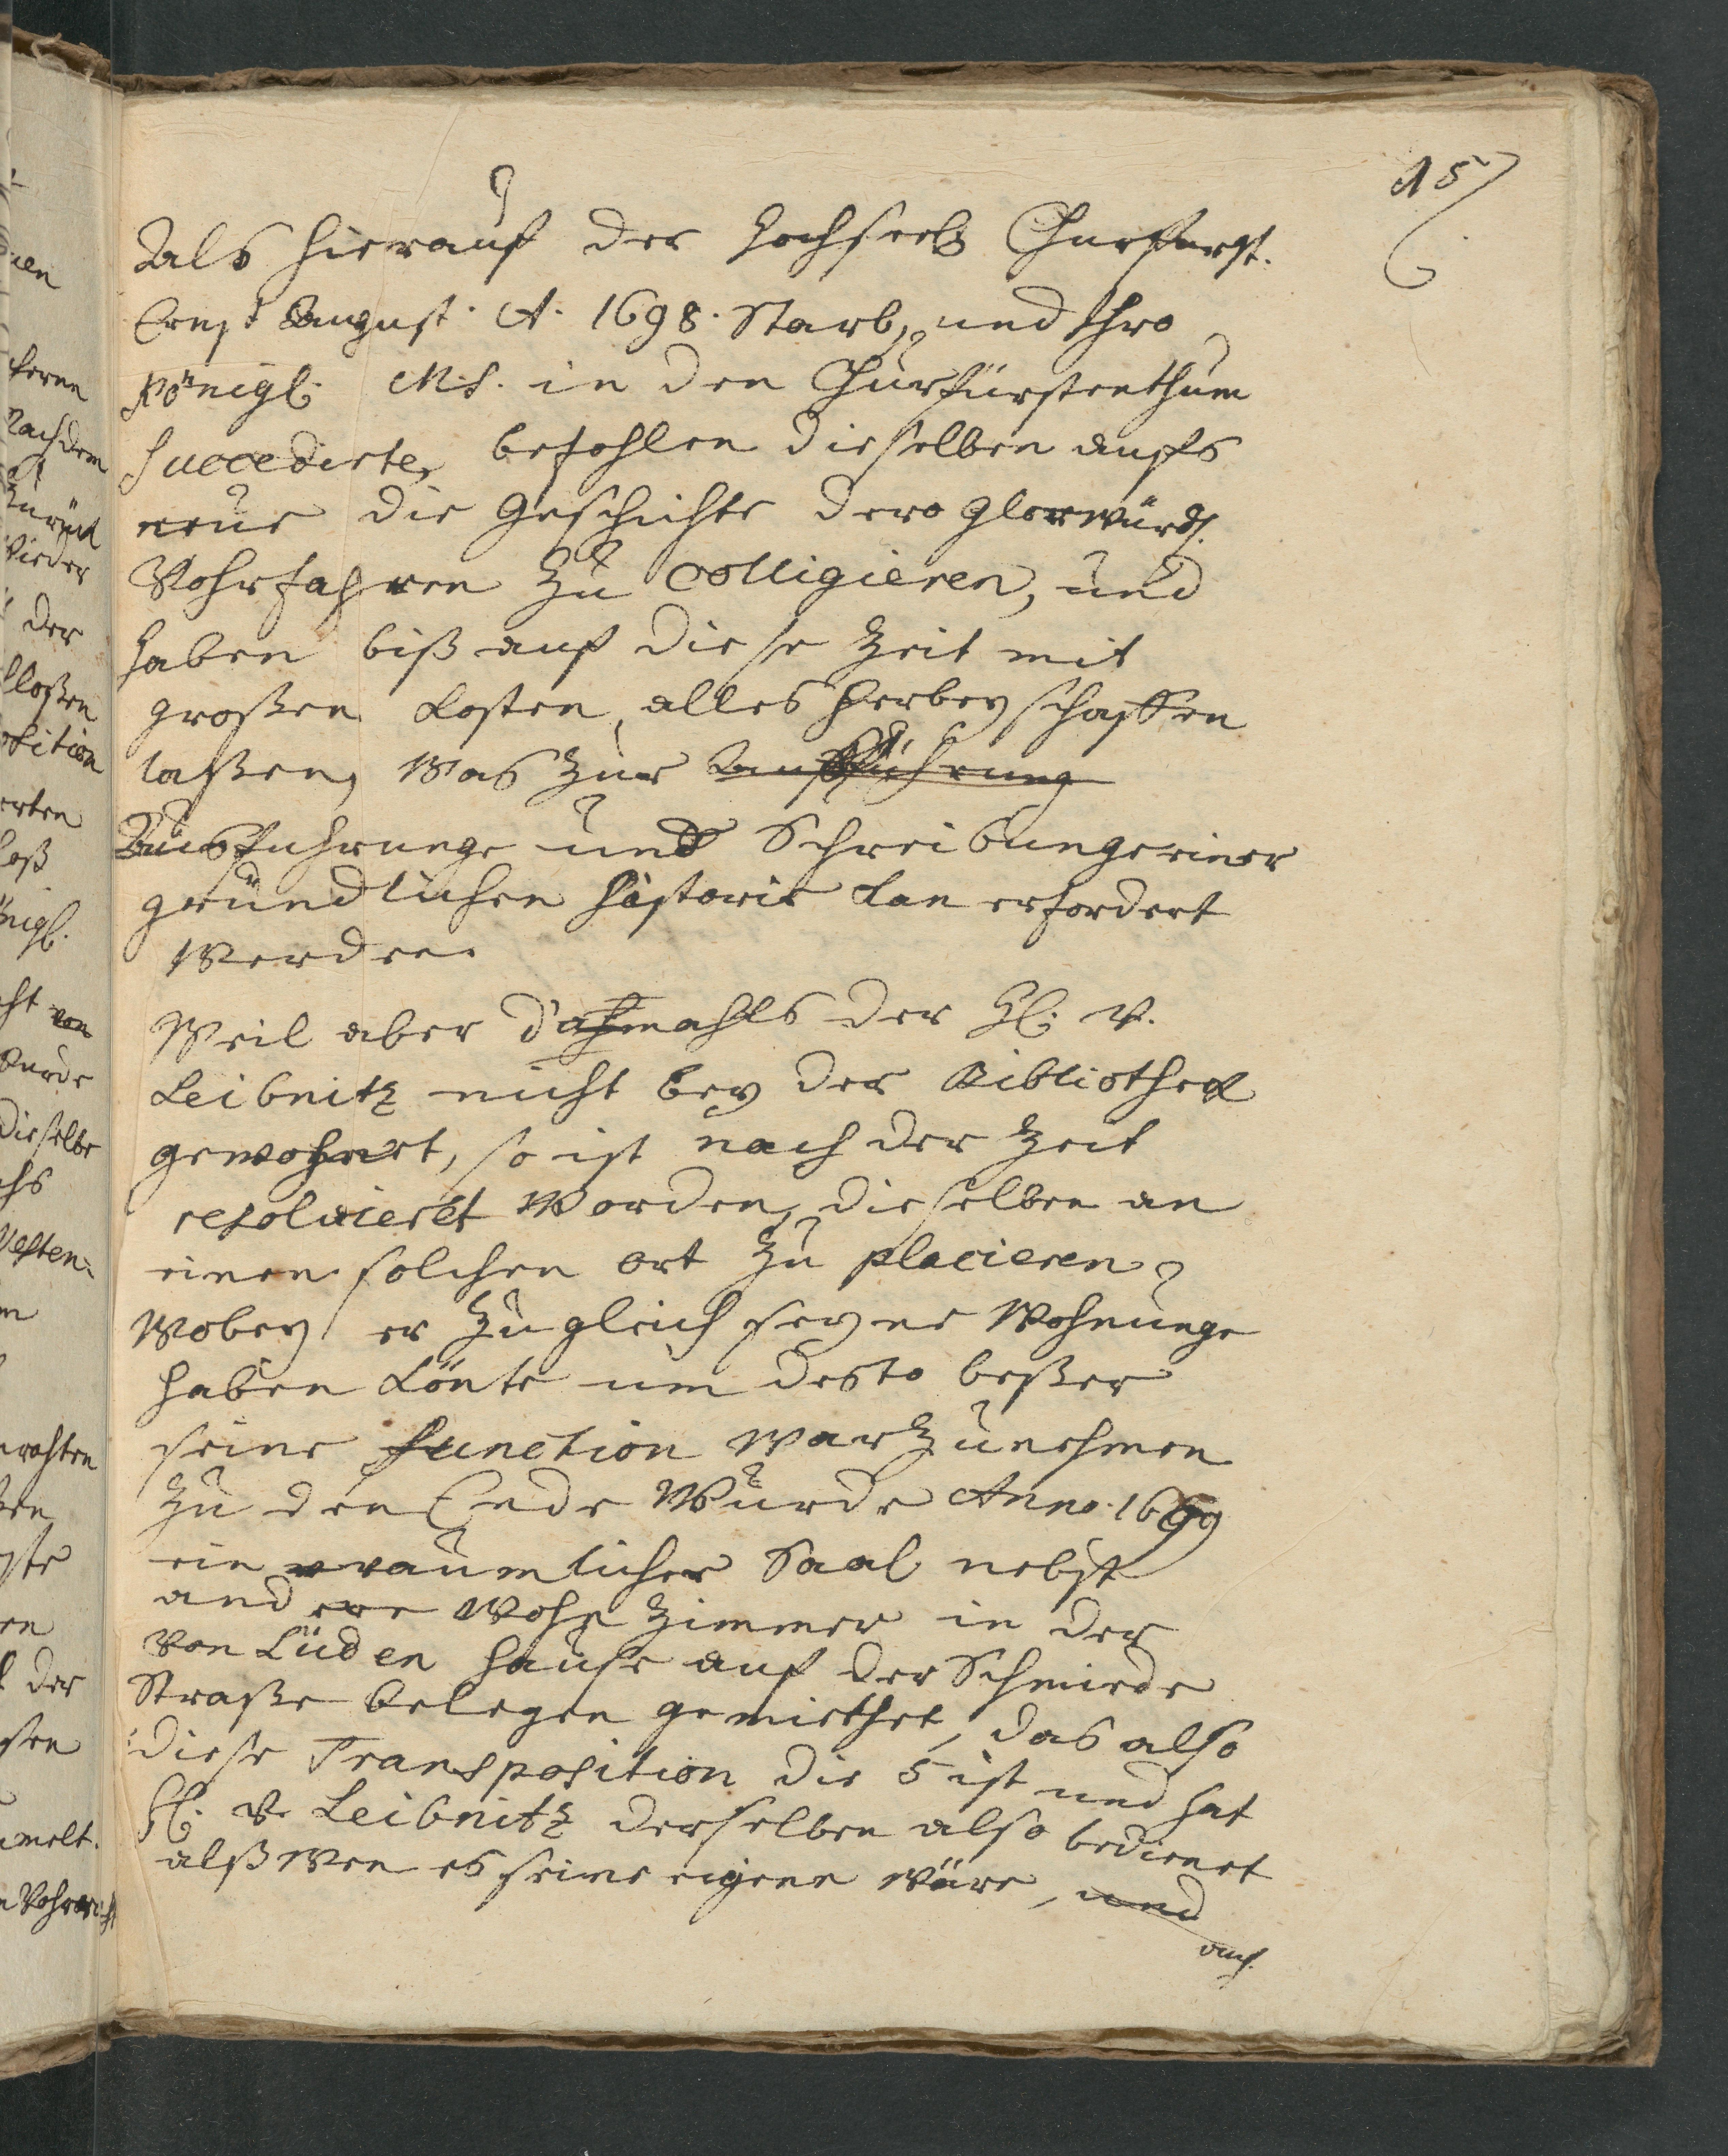 15
Als hierauf der Hochseel. Churfürst.
Ernst August. A. 1698. Starb, und Ihro
Königl. M.t. in den Churfürstenthum
succedirte, befohlen dieselben aufs
neue die Geschichte dero glorwürd.
Vohrfahren zu colligieren, und
haben biß auf diese Zeit mit
großen Kosten, alles herbey schaffen
laßen, Was zur Ausführung
Ausfuhrunge und Schreibunge einer
gründlichen Historie kan erfordert
Werden.
Weil aber dahmahls der H. v.
Leibnitz nicht bey der Bibliothek
gewohnet, so ist nach der Zeit
resolvieret Worden, dieselben an
einen solchen ort zu placieren,
Wobey er zugleich seyne Wohnunge
haben könte um desto beßer
seine function warzunehmen
zu den Ende Wurde Anno. 1699
ein raumlicher Saal nebst
andere Wohn Zimmer in der
von Lüden Hause auf der Schmiede
Straße belegen gemiethet, das also
diese Transposition die 5 ist und hat
H. v. Leibnitz derselben also bedienet
alß Wen es seine eigene wäre, und
auch
nachdem
zurück
Wieder
der
dieselbe
der